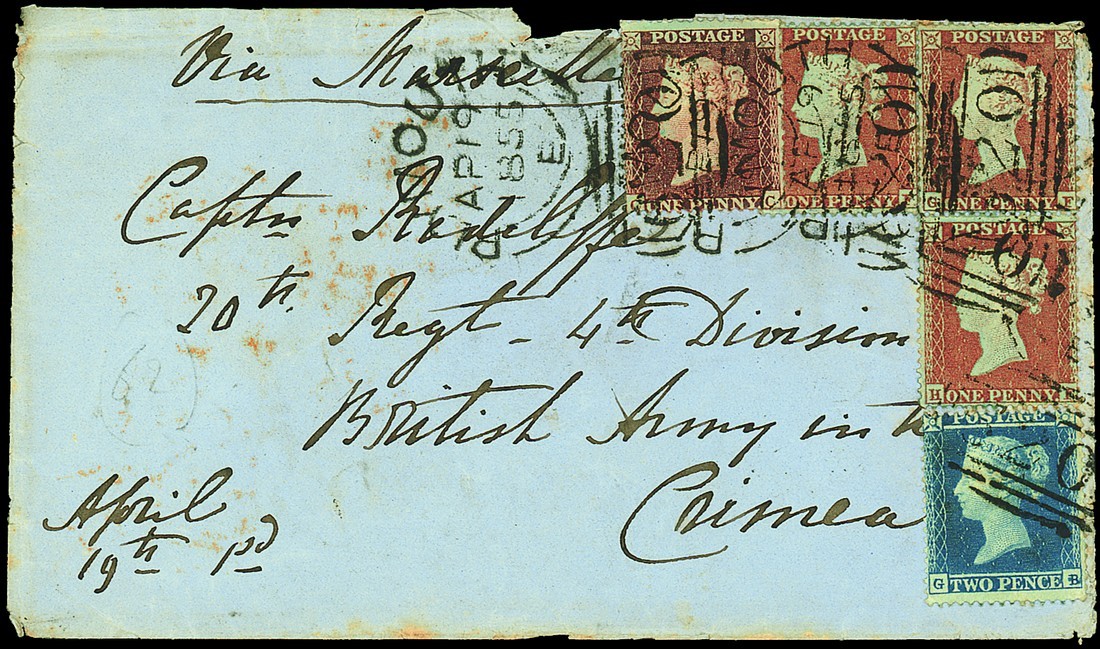 Via Marseille
Captn Radcliffe
20th Regt - 4th Division
British Army in the
Crimea
April
19th pd
AP 19
1855
E
POSTAGE
ONE PENNY
POSTAGE
ONE PENNY
POSTAGE
201
G ONE PENNY
POSTAGE
H ONE PENNY
POSTAGE
G TWO PENCE B
(62)